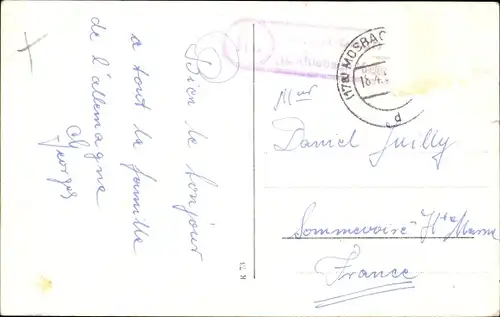 Bien le bonjour
a tout la famille
de l'allemagne
Georges
(17a) MOSBAC
18.4.
d
Mur
Daniel Guilly
Sommevoire Hte Marne
France